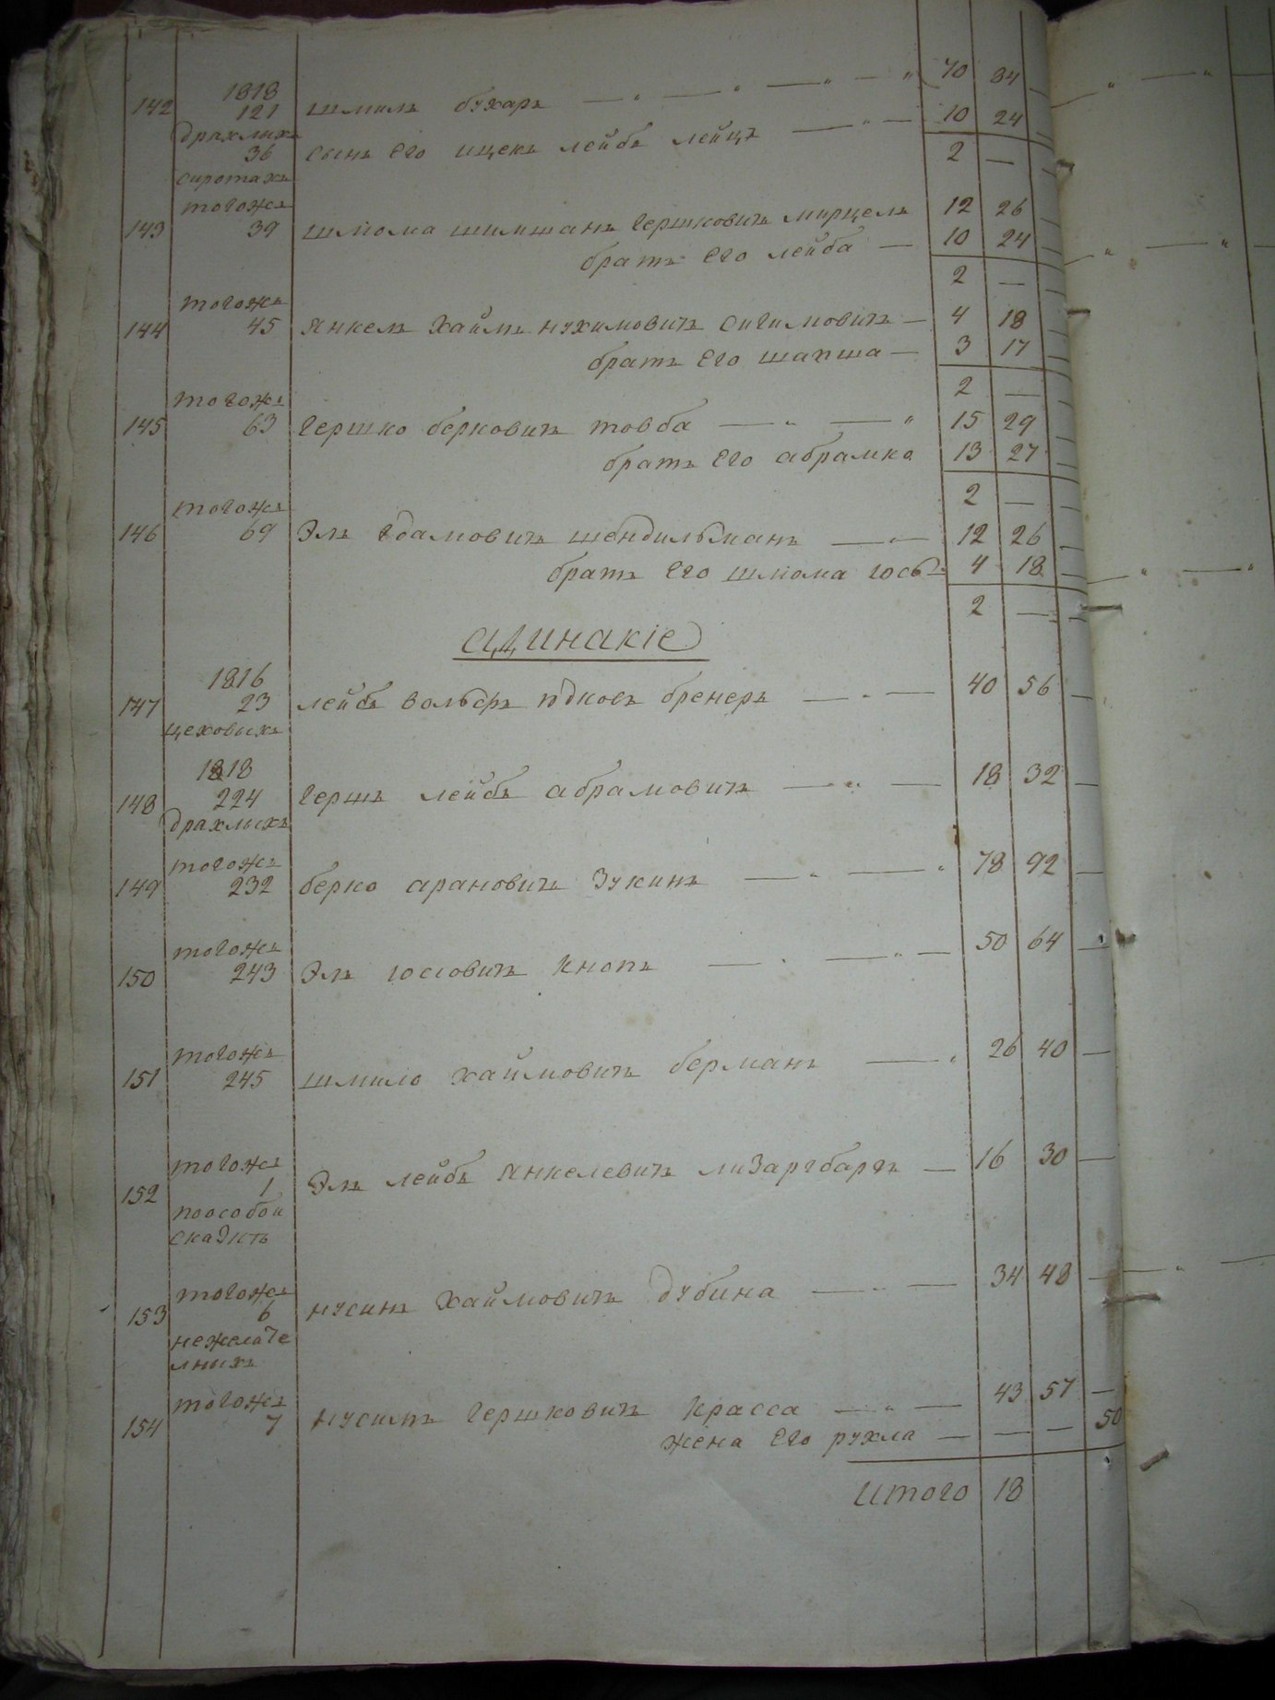 1818
142 121 шмиль бухаръ — " — " — " — " 70 84 —
дряхлыхъ
36 сынъ его ицекъ лейбъ лейцъ — " — 10 24 —
сиротахъ 2 —
тогожъ
143 39 шліома шимшанъ гершковичъ мирцель 12 26 —
братъ его лейба — 10 24 —
2 —
тогожъ
144 45 янкель хаймъ нухимовичъ сигимовичъ — 4 18 —
братъ его шапша — 3 17 —
2 —
тогожъ
145 63 гершко берковичъ товба — " — " 15 29 —
братъ его абрамко 13 27 —
2 —
тогожъ
146 69 Эль адамовичъ шендильманъ — " — 12 26 —
братъ его шліома іось — 4 18 —
2 — —
адинакіе
1816
147 23 лейбъ вольфъ бренеръ — " — 40 56 —
цеховыхъ
1818
148 224 гершъ лейбъ абрамовичъ — " — 18 32 —
дряхлыхъ
тогожъ
149 232 берко арановичъ Зукинъ — " — " 78 92 —
тогожъ
150 243 Эль іосіовичъ кнопъ — " — " — 50 64 —
тогожъ
151 245 шмило хаймовичъ берманъ — " 26 40 —
тогожъ
152 1 Эль лейбъ янкелевичъ — 16 30 —
поособой
тогожъ
153 6 нусинъ хаймовичъ дубина — " — 34 48 —
нежелате
лныхъ
тогожъ
154 7 нусимъ гершковичъ красса — " — 43 57 —
жена его рухла — — — 50
итого 18